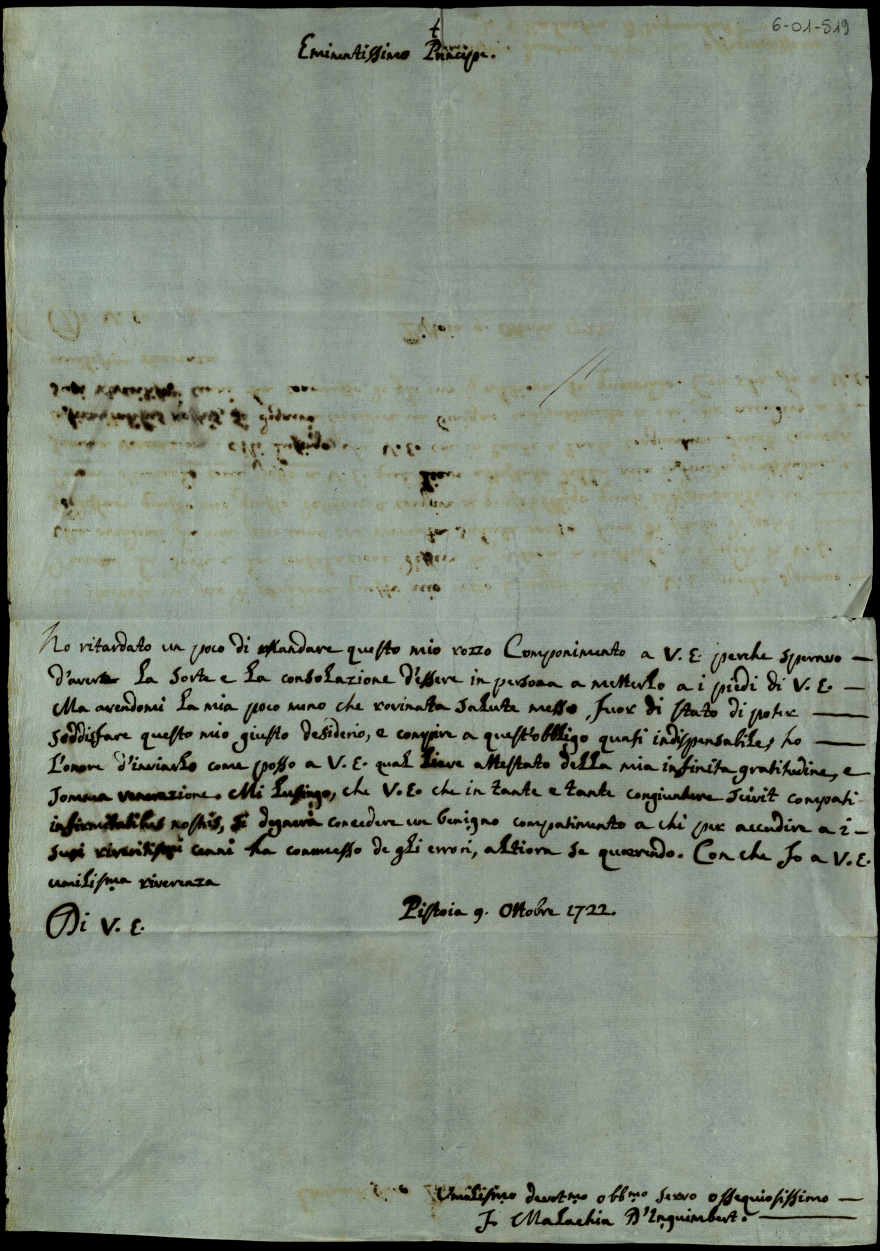 6-01-519
†
Eminentissimo Principe.
Ho ritardato un poco di mandare questo mio rozzo Componimento a V. E. perche speravo —
d'avere la sorte e la consolazione d'essere in persona a metterlo a i piedi di V. E. —
Ma avendomi la mia poco meno che rovinata salute messo fuor di stato di poter —
soddisfare questo mio giusto desiderio, e compire a quest'obbligo quasi indispensabile, ho —
l'onore d'inviarlo come posso a V. E. qual lieve attestato della mia infinita gratitudine, e
somma venerazione. Mi lusingo, che V. E. che in tante e tante congiunture scivit compati
infirmitatibus nostris, si degnerà concedere un benigno compatimento a chi per accudire a i —
suoi riveritissimi cenni ha commesso de gli errori, altiora se quaerendo. Con che Io a V. E.
umilissima riverenza
Pistoia 9. Ottobre 1722.
Di V. E.
Umilissimo devotmo obbmo servo ossequiosissimo —
Fr Malachia D'Inguimbert. —